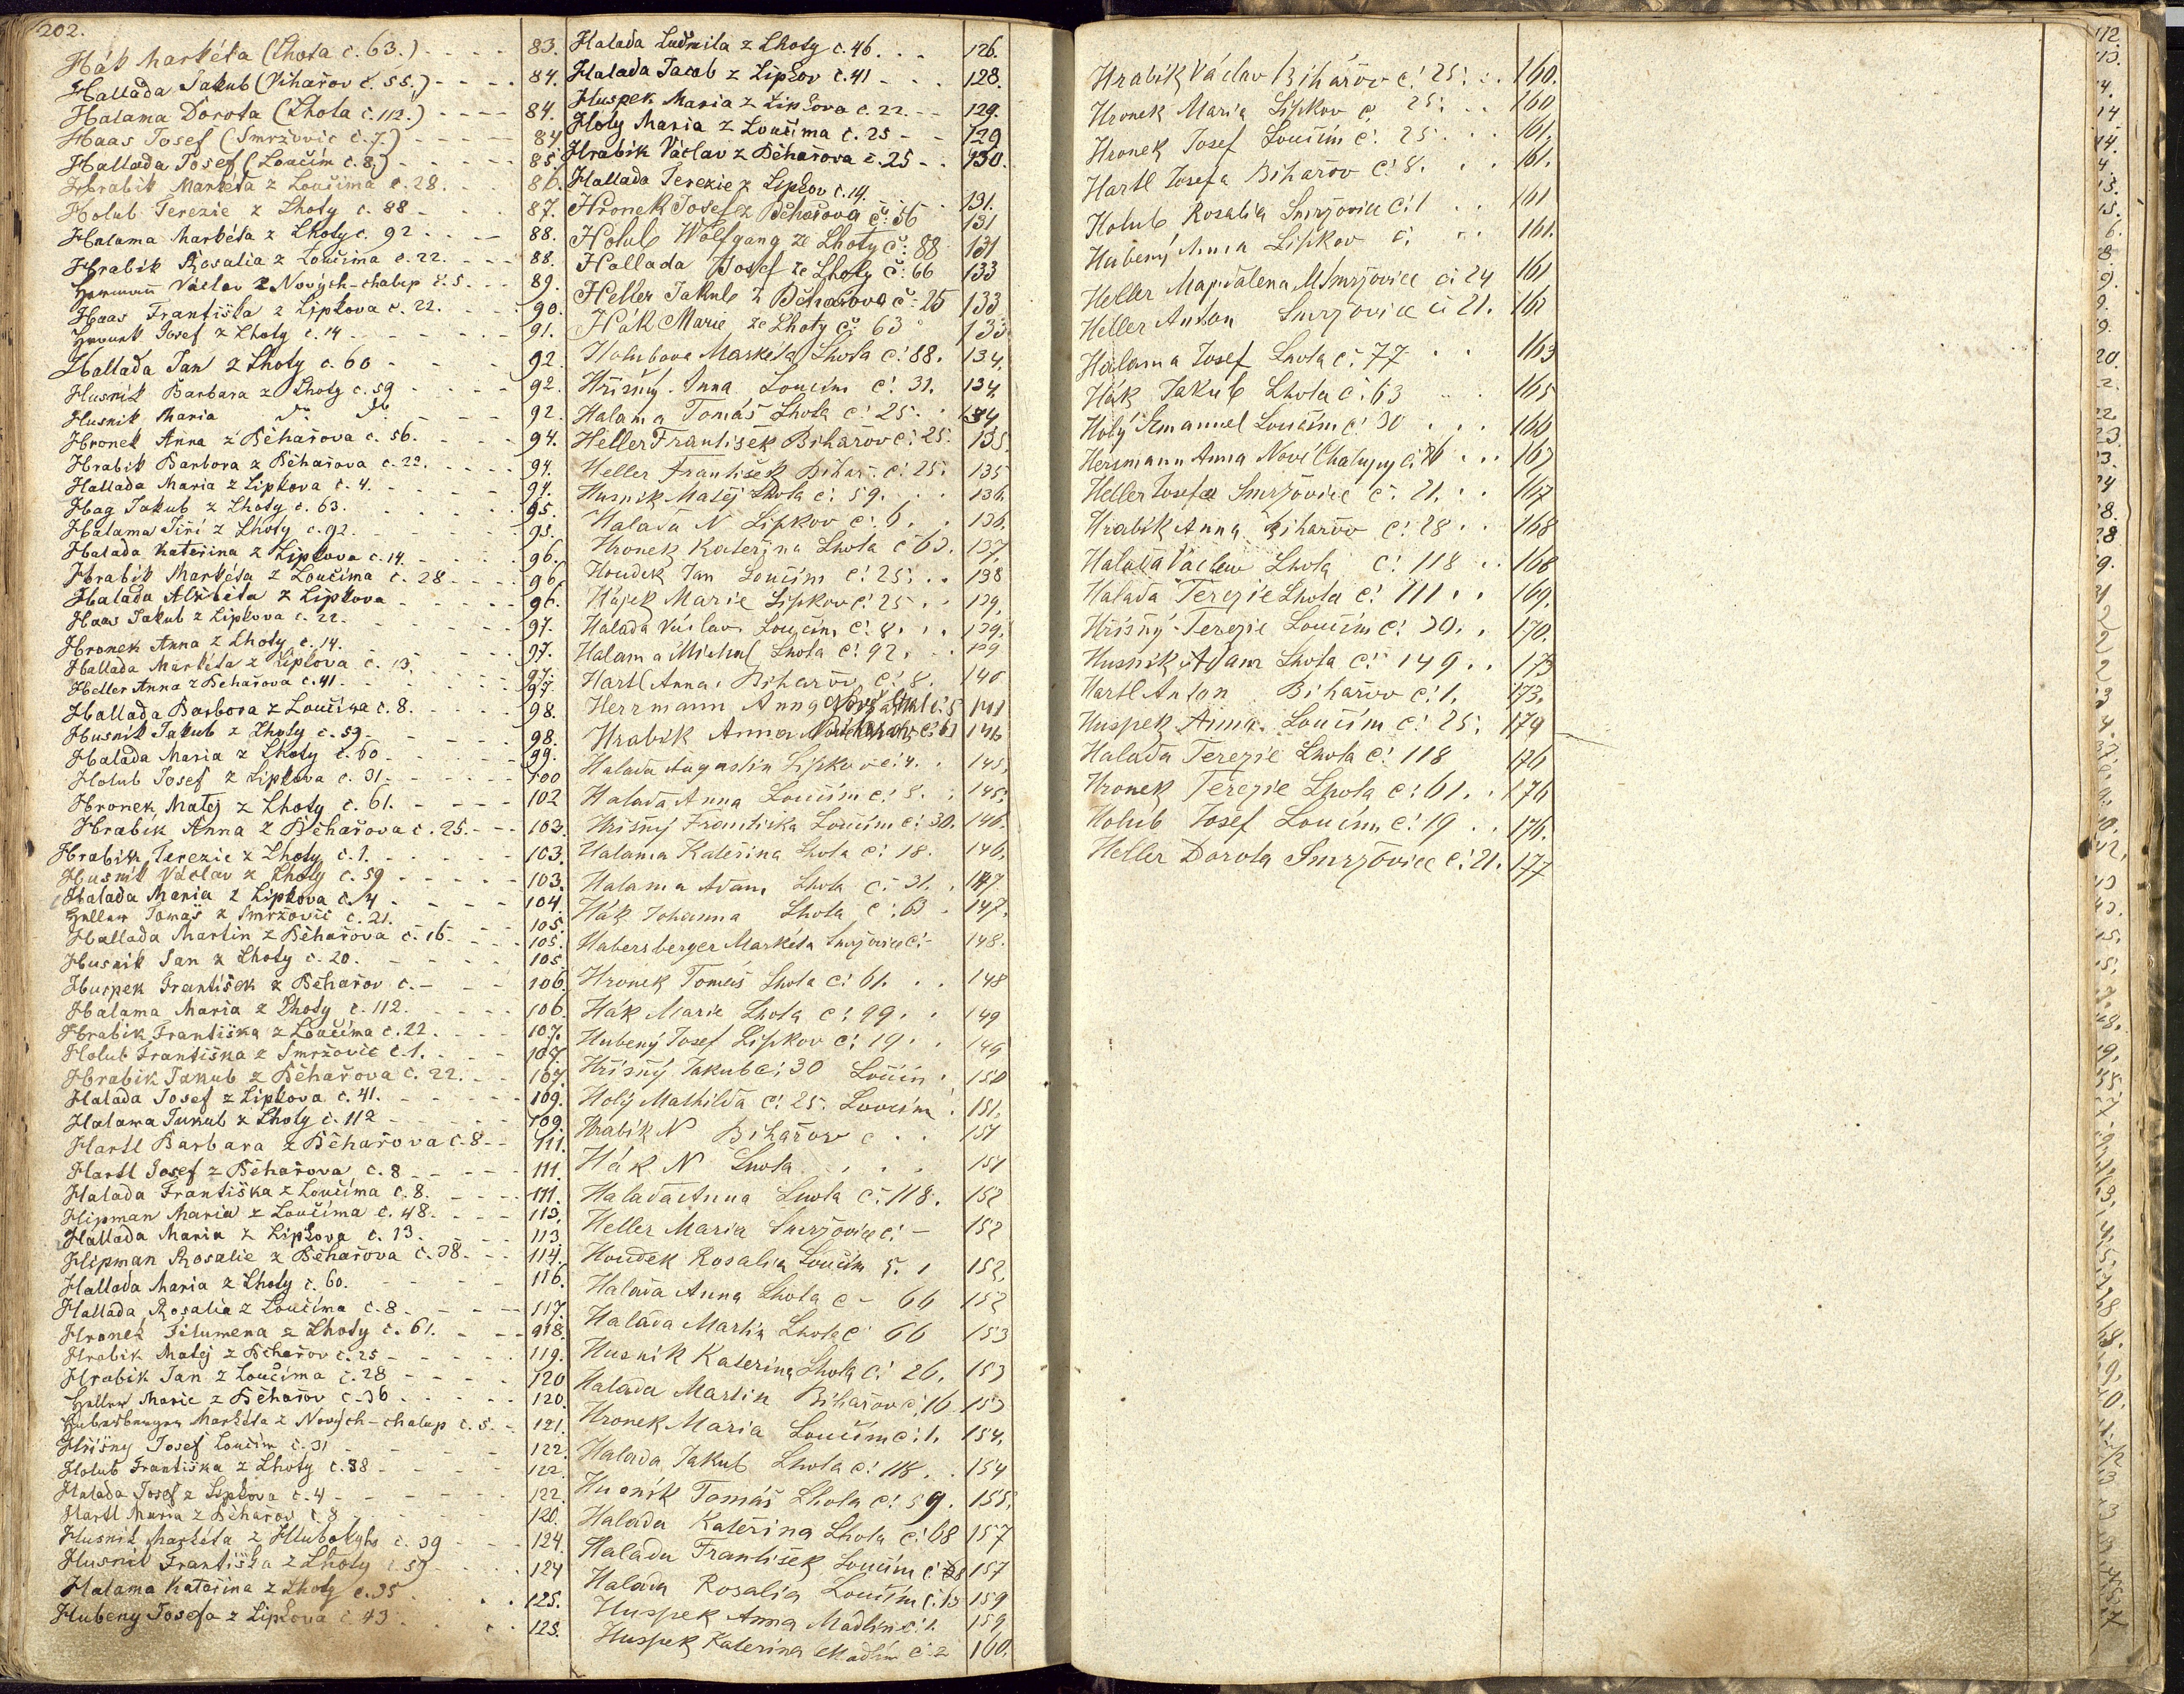 202.
Hák Markéta (Lhota č. 63.) - - - - 83.
Hallada Jakub (Běhařov č. 55.) - - - - 84.
Halama Dorota (Lhota č. 112.) - - - - 84.
Haas Josef (Smržovic č. 7.) - - - - 84.
Hallada Josef (Loučim č. 8.) - - - - 85.
Hrabik Markéta z Loučima č. 28. - - 86.
Holub Terezie z Lhoty č. 88 - - - 87.
Halama Markéta z Lhoty č. 92 - - - 88.
Hrabik Rosalia z Loučima č. 22. - - - 88.
Hermann Václav z Nových-chalup č. 5. - - 89.
Haas Františka z Lipkova č. 22. - - - 90.
Josef z Lhoty č. 14 - - - - 91.
Hallada Jan z Lhoty č. 60 - - - - 92.
Husnik Barbara z Lhoty č. 59 - - - - 92.
Husnik Maria do do - - - 92.
Hronek Anna z Běhařova č. 56. - - - 94.
Hrabik Barbora z Běhařova č. 22. - - - 94.
Hallada Maria z Lipkova č. 4. - - - 94.
Hag Jakub z Lhoty č. 63. - - - 95.
Halama Jiří z Lhoty č. 92. - - - 95.
Halada Kateřina z Lipkova č. 14. - - - 96.
Hrabik Markéta z Loučima č. 28 - - - 96.
Halada Alžběta z Lipkova - - - 96.
Haas Jakub z Lipkova č. 22. - - - 97.
Hronek Anna z Lhoty č. 14. - - - 97.
Hallada Markéta z Lipkova č. 13. - - - 97.
Heller Anna z Běhařova č. 41. - - - 97.
Hallada Barbora z Loučima č. 8. - - - 98.
Husnik Jakub z Lhoty č. 59. - - - 98.
Halada Maria z Lhoty č. 60 - - - 99.
Holub Josef z Lipkova č. 31. - - - 100
Hronek Matěj z Lhoty č. 61. - - - 102
Hrabik Anna z Běhařova č. 25. - - 103.
Hrabik Terezie z Lhoty č. 1. - - - 103.
Husnik Václav z Lhoty č. 59 - - - 103.
Halada Maria z Lipkova č. 4 - - - 104.
Heller Tomáš z Smržovic č. 21. - - - 105.
Hallada Martin z Běhařova č. 16. - - - 105.
Husnik Jan z Lhoty č. 20. - - - 105.
Huspek František z Běhařov č. - - - 106.
Halama Maria z Lhoty č. 112. - - - 106.
Hrabik Františka z Loučima č. 22. - - - 107.
Holub Františka z Smržovic č. 1. - - - 107.
Hrabik Jakub z Běhařova č. 22. - - 107.
Halada Josef z Lipkova č. 41. - - - 109.
Halama Jakub z Lhoty č. 112 - - - 109.
Hartl Barbara z Běhařova č. 8 - - 111.
Hartl Josef z Běhařova č. 8 - - - 111.
Halada Františka z Loučima č. 8. - - - 111.
Hipman Maria z Loučima č. 48. - - - 113.
Hallada Maria z Lipkova č. 13. - - - 113.
Hipman Rosalie z Běhařova č. 38. - - 114.
Hallada Maria z Lhoty č. 60. - - - 116.
Hallada Rosalia z Loučima č. 8. - - - 117.
Hronek Filumena z Lhoty č. 61. - - - 118.
Hrabik Matěj z Běhařov č. 25 - - - 119.
Hrabik Jan z Loučima č. 28 - - - 120
Heller Marie z Běhařov č. 36 - - - 120.
Markéta z Nových-chalup č. 5. - 121.
Hříšny Josef Loučim č. 31 - - - 122.
Holub Františka z Lhoty č. 88 - - - 122.
Halada Josef z Lipkova č. 4 - - - 122.
Hartl Maria z Běhařov č. 8 - - - 120.
Husnik Markéta z Hlubokyho č. 39 - - - 124.
Husnik Františka z Lhoty č. 59 - - - 124
Halama Kateřina z Lhoty č. 35 . . . 125.
Hubeny Josefa z Lipkova č. 43 . . . 125.
Halada Ludmila z Lhoty č. 46. . . 126.
Halada Jacob z Lipkov č. 41 - - 128.
Huspek Maria z Lipkova č. 22. - - 129.
Holy Maria z Loučima č. 25 - - 129
Hrabik Václav z Běhařova č. 25 - - 130.
Hallada Terezie z Lipkov č. 14. - - 131.
Hronek Josef z Běhařova č: 56 131
Holub Wolfgang ze Lhoty č: 88 131
Hallada Josef ze Lhoty č: 66 133
Heller Jakub z Běhařova č: 25 133
Hák Marie ze Lhoty č: 63 133
Holubova Markéta Lhota č: 88. 134.
Hříšný Anna Loučim č: 31. 134.
Halama Tomáš Lhota č: 25. . 134
Heller František Běhařov č: 25. 135.
Heller František Běhař. č: 25. 135
Husnik Matěj Lhota č: 59. . . 136.
Halada N Lipkov č: 6. . 136.
Hronek Kateřina Lhota č 63. 137.
Houdek Jan Loučim č: 25. . . 138
Hájek Marie Lipkov č: 25 . . 139.
Halada Václav Loučim č: 8. . . 139.
Halama Michal Lhota č: 92. . . 139
Hartl Anna Běhařov č: 8. 140
Herrmann Anna Nové Chal č: 5 141
Hrabik Anna 141
Halada Augustin Lipkov č: 4. . 145.
Halada Anna Loučim č: 8. . 145.
Hříšný Františka Loučim č: 30. 146.
Halama Kateřina Lhota č: 18. 146.
Halama Adam Lhota č: 31. . 147.
Hák Johanna Lhota č: 63 . 147.
Habersberger Markéta Smržovice č: - 148.
Hronek Tomáš Lhota č: 61. . . 148
Hák Marie Lhota č: 99. . 149
Hubený Josef Lipkov č: 19. . 149
Hříšný Jakub č: 30 Loučin . 150
Holý Mathilda č: 25. Loučim . 151.
Hrabik N Běhařov č . . 151
Hák N Lhota . . . . 151
Halada Anna Lhota č: 118. 152
Heller Maria Smržovice č: - 152
Houdek Rosalia Loučim č. 1 152.
Halada Anna Lhota č - 66 152
Halada Martin Lhota č 66 153
Husnik Kateřina Lhota č: 26. 153
Halada Martin Běhařov č: 16 153
Hronek Maria Loučim č: 1. 154.
Halada Jakub Lhota č: 118. . 154
Husnik Tomáš Lhota č: 59. 155.
Halada Kateřina Lhota č: 68 157
Halada František Loučim č: 157
Halada Rosalia Loučim č: 13 159
Huspek Anna č: 2. 159
Huspek Kateřina č: 2 160.
Hrabik Václav Běhařov č: 25. . . 160.
Hronek Maria Lipkov č. 25. . . 160
Hronek Josef Loučim č: 25 . . . 161.
Hartl Josefa Běhařov č: 8. . . 161.
Holub Rosalia Smržovice č: 1 . . 161
Hubený Anna Lipkov č: . . 161.
Heller Magdalena Smržovice č: 24 161
Heller Anton Smržovice č: 21. 161
Halama Josef Lhota č: 77 . . 163
Hák Jakub Lhota č: 63 . . . 165
Holý Emanuel Loučim č: 30 . . . 166
Hersmann Anna Nové Chalupy č: . . . 167
Heller Josefa Smržovice č: 21. . . 167
Hrabik Anna Běhařov č: 28 . . 168
Halada Václav Lhota č: 118 . . 168
Halada Terezie Lhota č: 111 . . 169.
Hříšný Terezie Loučim č: 30. . 170.
Husnik Adam Lhota č: 149 . . 173
Hartl Anton Běhařov č: 1. 173.
Huspek Anna Loučim č: 25. 174
Halada Terezie Lhota č: 118 176
Hronek Terezie Lhota č: 61. . 176
Holub Josef Loučim č: 19 . . 176.
Heller Dorota Smržovice č: 21. 177